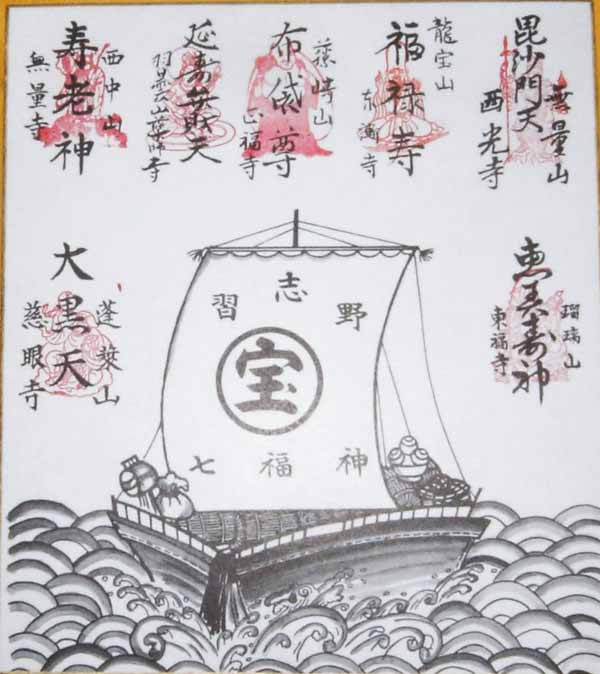 無量山
毘沙門天
西光寺
龍宝山
福禄寿
東漸寺
藤崎山
布袋尊
正福寺
延寿弁財天
羽雲山薬師寺
西中山
寿老神
無量寺
瑠璃山
恵美寿神
東福寺
蓬莱山
大黒天
慈眼寺
習志野
宝
七福神